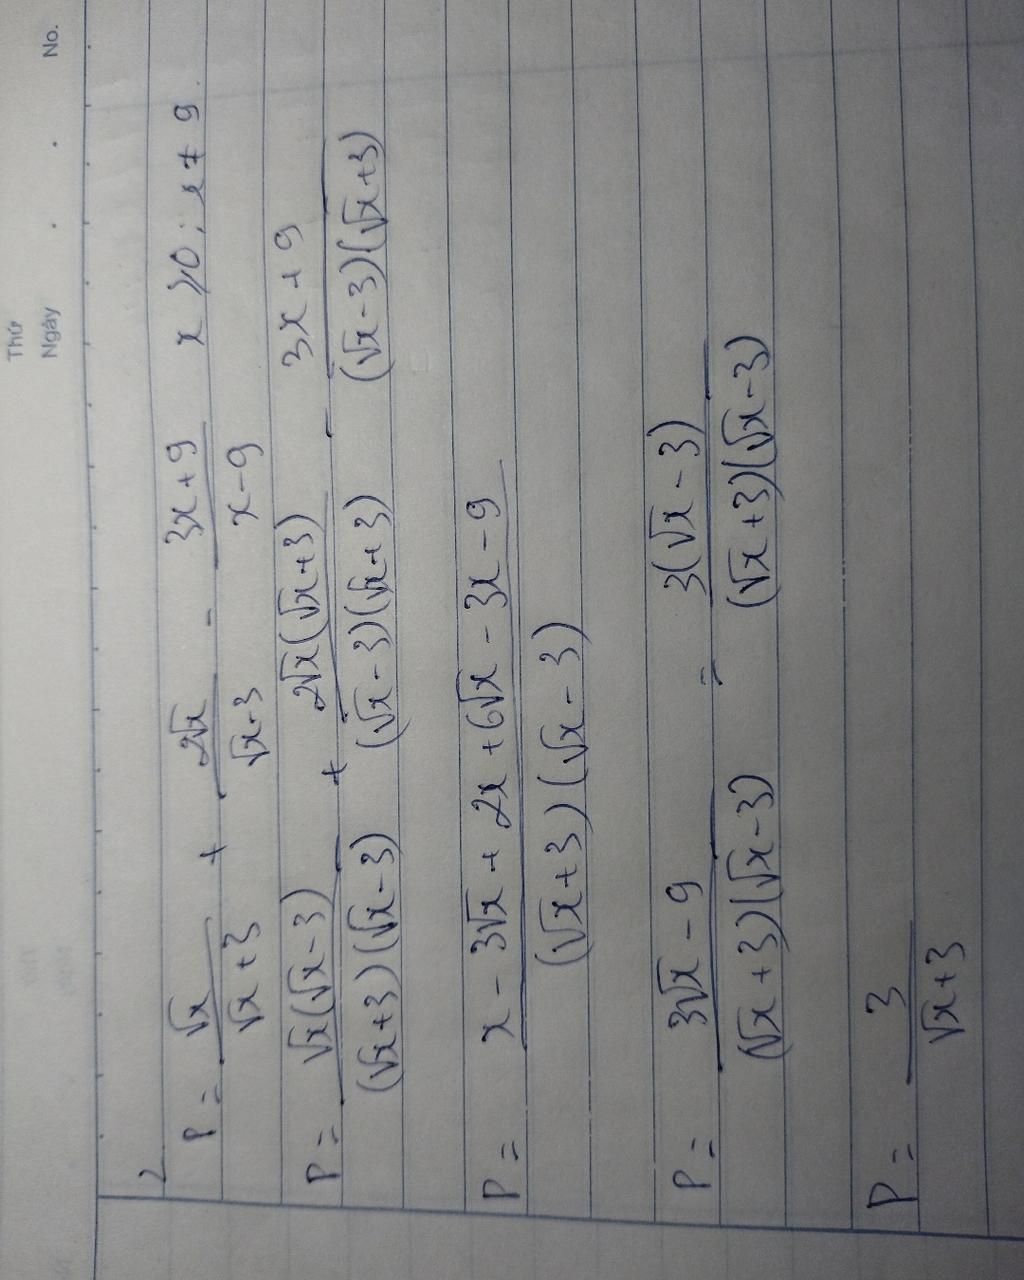 Thứ
Ngày . . No.
2
P = √x / (√x + 3) + 2√x / (√x - 3) - (3x + 9) / (x - 9) x ≥ 0 ; x ≠ 9
P = √x(√x - 3) / (√x + 3)(√x - 3) + 2√x(√x + 3) / (√x - 3)(√x + 3) - (3x + 9) / (√x - 3)(√x + 3)
P = (x - 3√x + 2x + 6√x - 3x - 9) / (√x + 3)(√x - 3)
P = (3√x - 9) / (√x + 3)(√x - 3) = 3(√x - 3) / (√x + 3)(√x - 3)
P = 3 / (√x + 3)